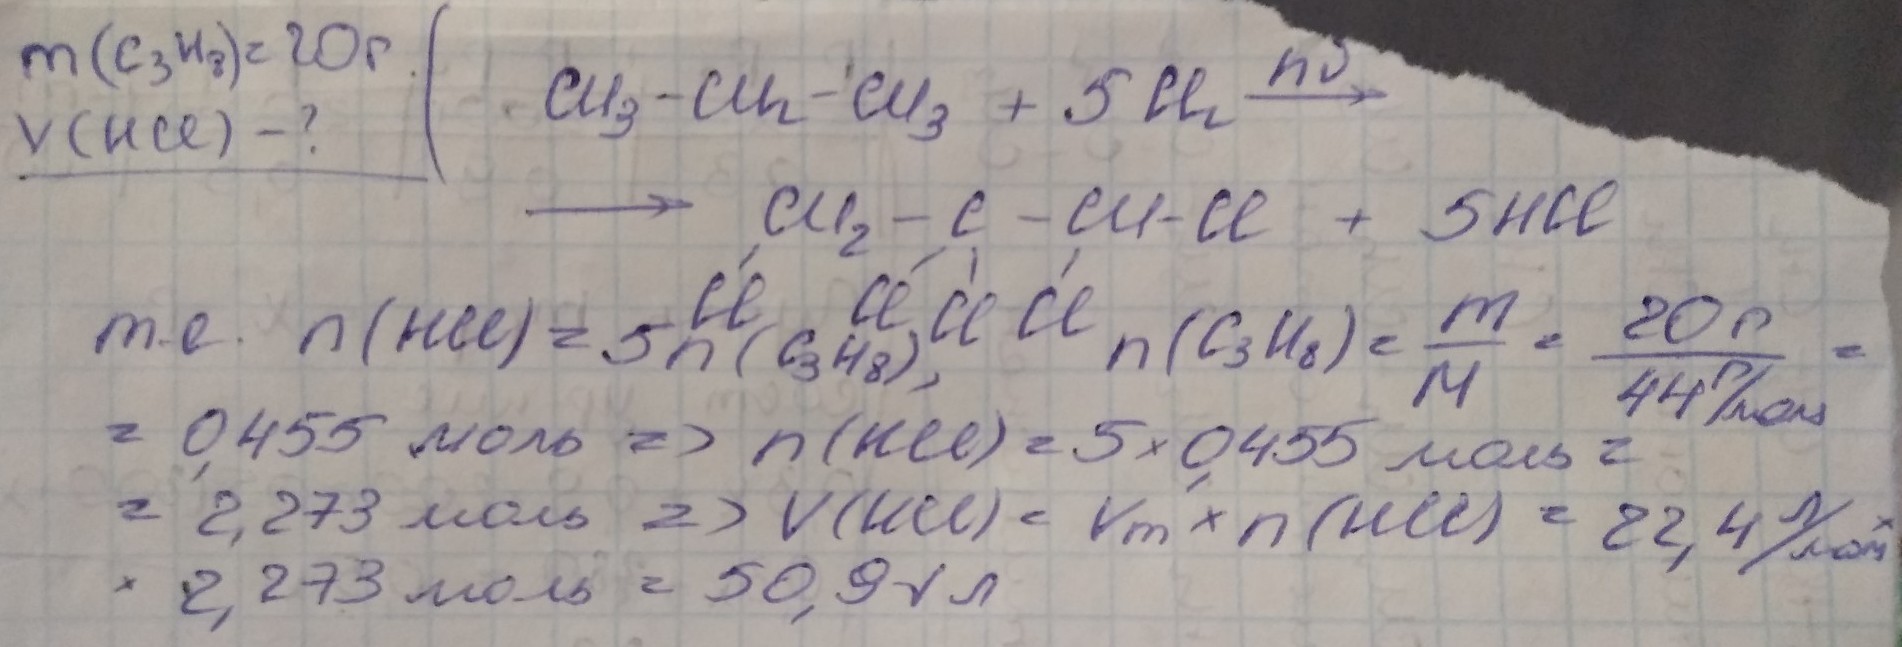 m(C₃H₈)=20г.
V(HCl) - ?
CH₃-CH₂-CH₃ + 5Cl₂ hν→
→ CH₂ - C - CH-Cl + 5HCl
Cl Cl Cl Cl
т.е. n(HCl) = 5n(C₃H₈), n(C₃H₈) = m/M = 20г/44г/моль =
= 0,455 моль => n(HCl) = 5×0,455 моль =
= 2,273 моль => V(HCl) = Vm × n(HCl) = 22,4 л/моль ×
× 2,273 моль = 50,9 л